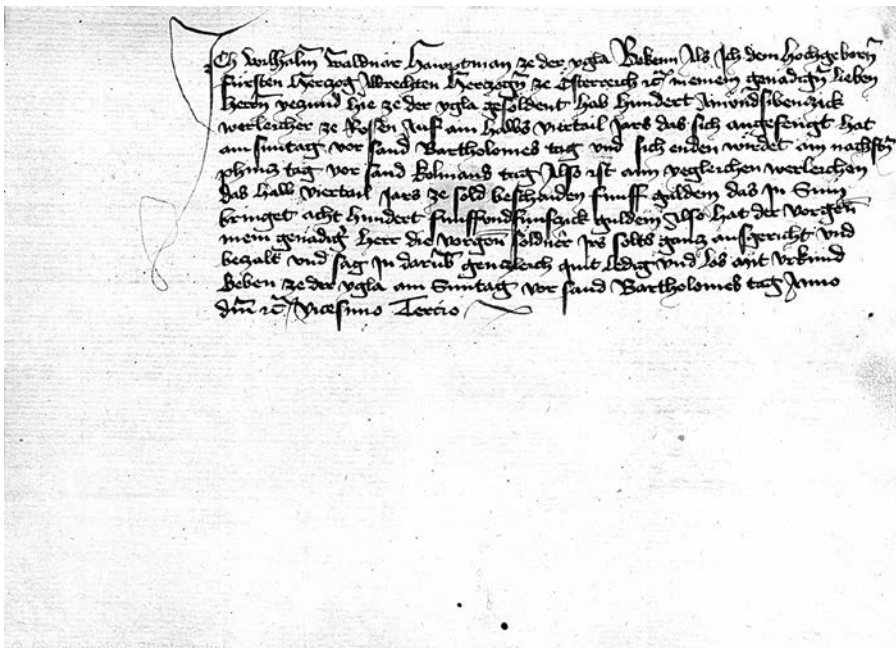 Ich Wilhalm Waldner Haubtman ze der Ygla Bekenn Als Ich dem Hochgeborn
fürsten Herczog Albrechten Herczogn ze Österreich etc meinem genädign lieben
Herrn yezund hie ze der Ygla gesoldent hab Hundert Ainondsibenczick
werleicher ze Rossen Auf ain halbs viertail Jars das sich angefengt hat
am Suntag vor sand Bartholomes tag und sich enden wirdet am nachstn
phincz tag vor sand Kolmans tag Also ist aim yegleichen werleichen
das halb viertail Jars ze sold beschaiden funff guldein das In Sum
bringet acht hundert funffondfunfczick guldein Also hat der vorgen
mein genädigr Herr die vorgen söldner irs solts gancz ausgericht und
beczalt und sag In darumb genczleich quit ledig und los mit urkund
Geben ze der Ygla am Suntag vor sand Bartholomes tag Anno
dm etc Vicesimo Tercio